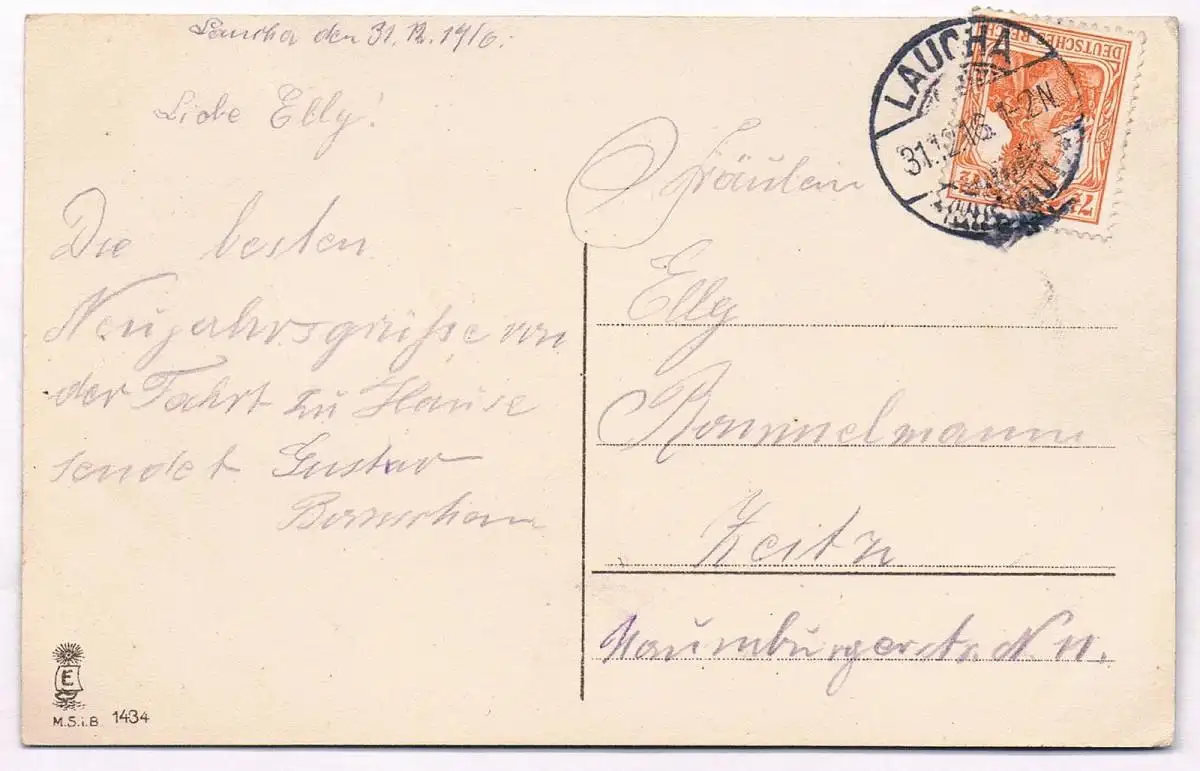 Laucha den 31.12.1916.
Liebe Elly!
Die besten
Neujahrsgrüße von
der Fahrt zu Hause
sendet Gustav
Fräulein
Elly
Bommelmann
Zeitz
Naumburgerstr. N. 11.
LAUCHA
31.12.16. 1-2N.
DEUTSCHES REICH
7½
E
M.S.i.B 1434